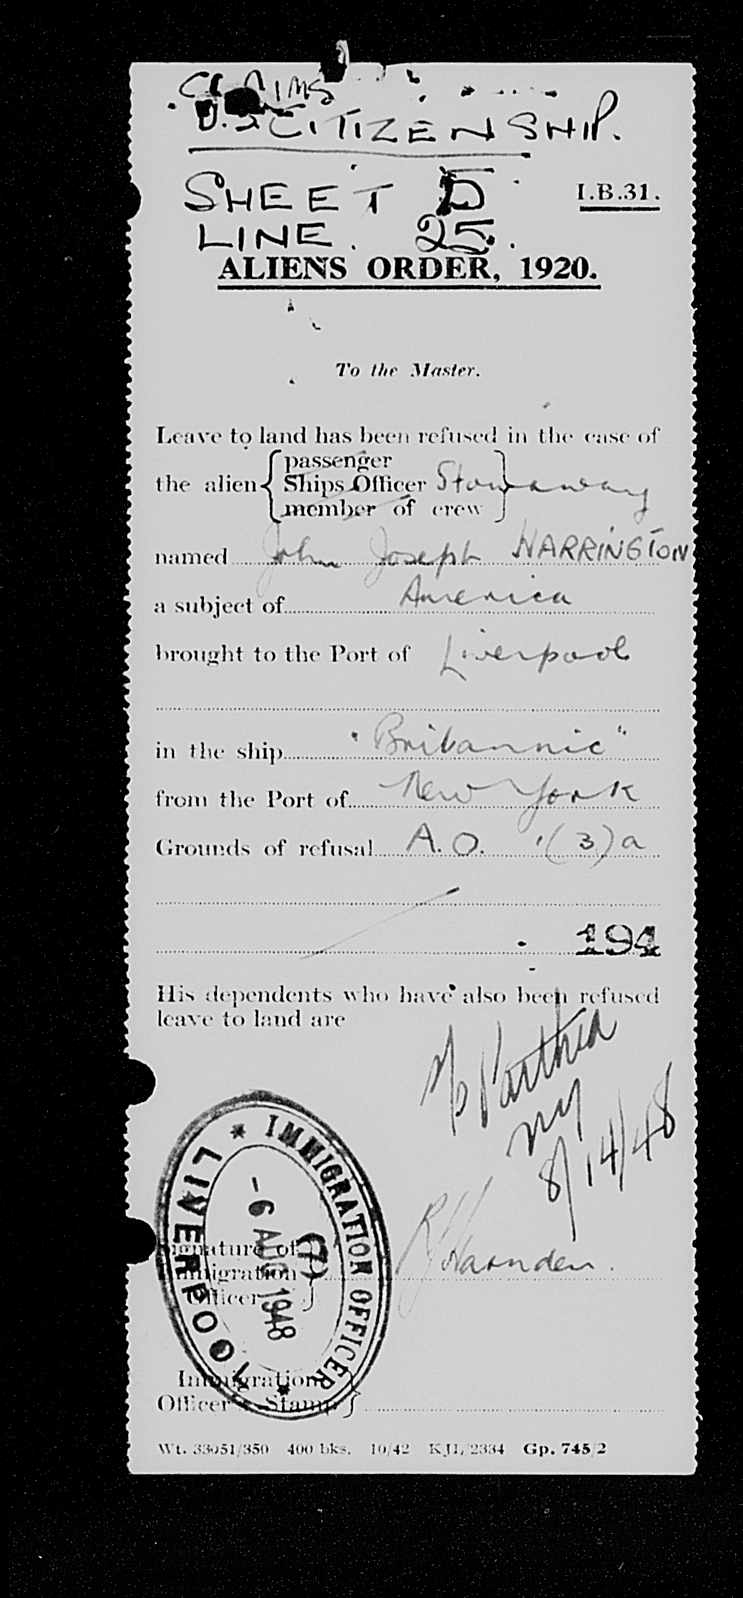 CLAIMS
U.S. CITIZENSHIP.
SHEET 5
I.B.31.
LINE. 25.
ALIENS ORDER, 1920.
To the Master.
Leave to land has been refused in the case of
the alien { passenger
Ships Officer } Stowaway
member of crew
named John Joseph HARRINGTON
a subject of America
brought to the Port of Liverpool
in the ship "Britannic"
from the Port of New York
Grounds of refusal A.O. 1(3)a
194
His dependents who have also been refused
leave to land are
Parthia
NY
8/14/48
IMMIGRATION OFFICER
LIVERPOOL
- 6 AUG 1948
(7)
Signature of
Immigration
Officer
Immigration
Officer's Stamp
Wt. 33051/350 400 bks. 10/42 KJL/2334 Gp. 745/2